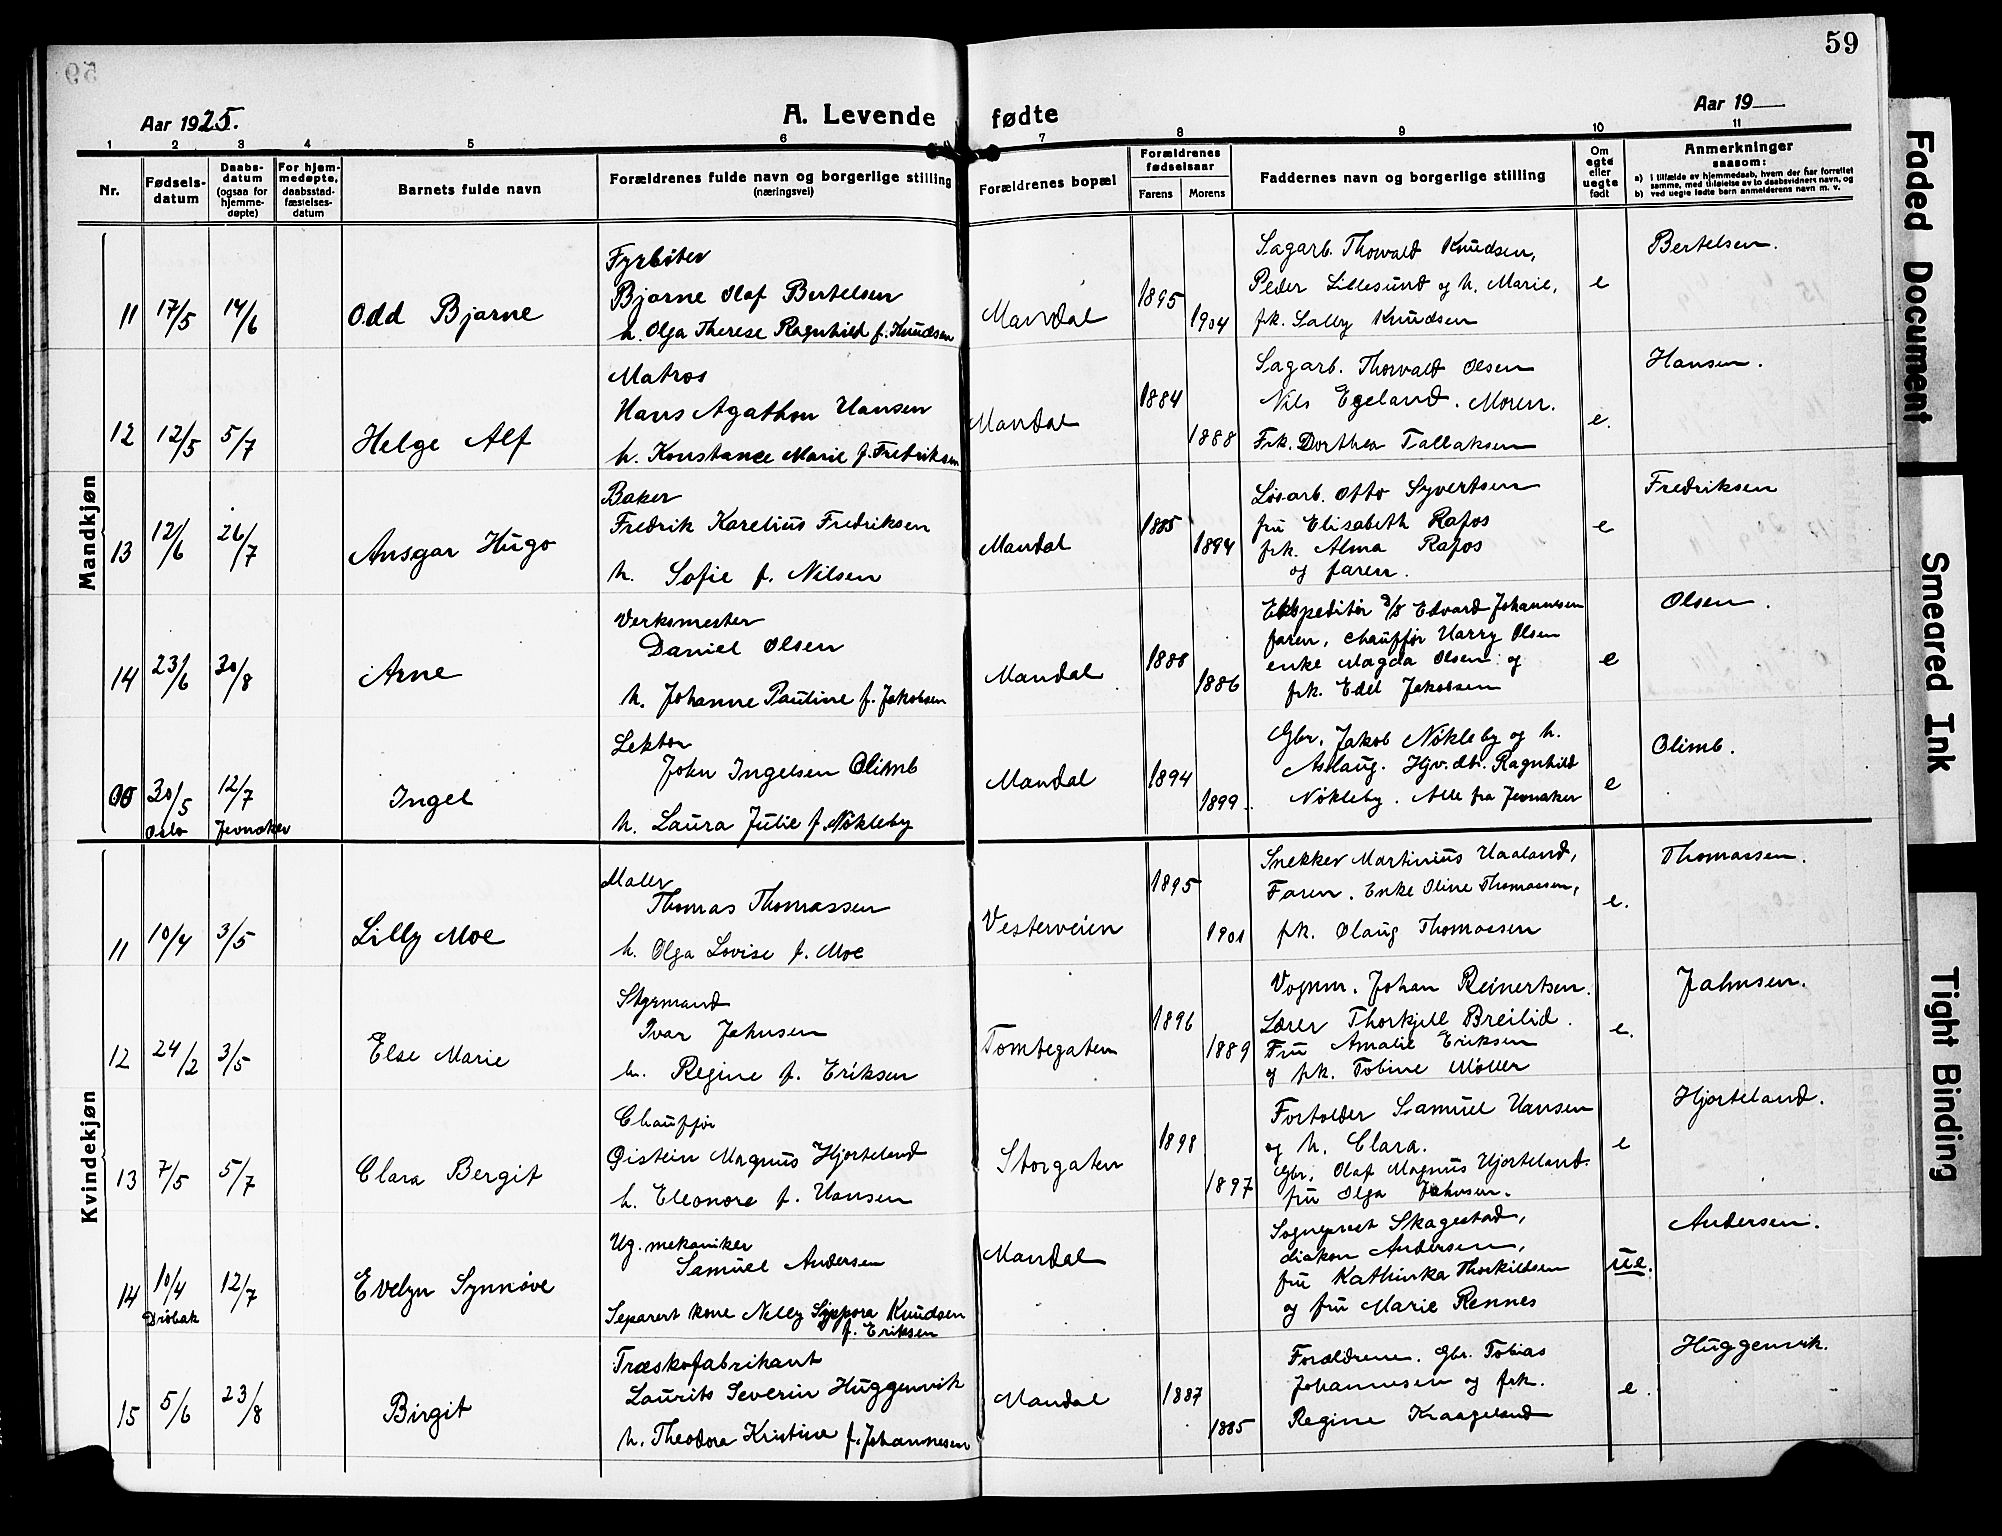 59
Aar 1925.
A. Levende fødte
Aar 19
1 2 3 4 5 6 7 8 9 10 11
Nr.
Fødsels-
datum
Daabs-
datum
(ogsaa for
hjemme-
døpte)
For hjem-
medøpte,
daabsstad-
fæstelses-
datum
Barnets fulde navn
Forældrenes fulde navn og borgerlige stilling
(næringsvei)
Forældrenes bopæl
Forældrenes
fødselsaar
Farens Morens
Faddernes navn og borgerlige stilling
Om
egte
eller
uegte
født
Anmerkninger
saasom:
a) i tilfælde av hjemmedaab, hvem der har forrettet
samme, med tilføielse av to daabsvidners navn, og
b) ved uegte fødte børn anmelderens navn m. v.
Mandkjøn
11 17/5 14/6 Odd Bjarne
Fyrbøter
Bjarne Olaf Bertelsen
h. Olga Therese Ragnhild f. Knudsen
Mandal 1895 1904
Sagarb. Thorvald Knudsen,
Peder Lillesund og h. Marie,
frk. Sally Knudsen
e
Bertelsen.
12 12/5 5/7 Helge Alf
Matros
Hans Agathon Hansen
h. Konstance Marie f. Fredriksen
Mandal 1884 1888
Sagarb. Thorvald Olsen
Nils Egeland. Moren.
Frk. Dorthea Tallaksen
e.
Hansen.
13 12/6 26/7 Ansgar Hugo
Baker
Fredrik Karelius Fredriksen
h. Sofie f. Nilsen
Mandal 1885 1894
Løsarb. Otto Syvertsen
fru Elisabeth Rafos
frk. Alma Rafos
og faren.
e
Fredriksen
14 23/6 30/8 Arne
Verksmester
Daniel Olsen
h. Johanne Pauline f. Jakobsen
Mandal 1888 1886
Ekspeditør D/S Edvard Johannesen
faren, chauffør Harry Olsen
enke Magda Olsen og
frk. Edel Jakobsen
e
Olsen.
30/5 12/7 Ingel
Oslo Jevnaker
Lektor
John Ingelsen Olimb
h. Laura Julie f. Nøkleby
Mandal 1894 1899.
Gbr. Jakob Nøkleby og h.
Aslaug. Hjv. dtr. Ragnhild
Nøkleby. Alle fra Jevnaker
e
Olimb.
Kvindekjøn
11 10/4 3/5 Lilly Moe
Maler
Thomas Thomassen
h. Olga Lovise f. Moe
Vesterveien 1895 1901
Snekker Martinius Haaland,
Faren. Enke Oline Thomassen,
frk. Olaug Thomassen
e.
Thomassen.
12 24/2 3/5 Else Marie
Styrmand
Ivar Jahnsen
h. Regine f. Eriksen
Tomtegaten 1896 1889
Vognm. Johan Reinertsen.
Lærer Thorkjell Breilid.
Fru Amalie Eriksen
og frk. Tobine Møller
e.
Jahnsen.
13 7/5 5/7 Clara Bergit
Chauffør
Øistein Magnus Hjorteland
h. Eleonore f. Hansen
Storgaten 1898 1897
Fortolder Samuel Hansen
og h. Clara.
Gbr. Olaf Magnus Hjorteland.
fru Olga Jahnsen.
e
Hjorteland.
14 10/4 12/7 Evelyn Synnøve
Drøbak
Ug. mekaniker
Samuel Andersen
Separert kone Nelly Sippora Knudsen
f. Eriksen
Mandal
Sogneprest Skagestad,
diakon Andersen,
fru Kathinka Thorkildsen
og fru Marie Rennes
ue.
Andersen.
15 5/6 23/8 Birgit
Træskofabrikant
Laurits Severin Huggenvik
h. Theodora Kristine f. Johannesen
Mandal 1887 1885
Forældrene. Gbr. Tobias
Johannesen og frk.
Regine Kraageland
e.
Huggenvik.
Faded Document
Smeared Ink
Tight Binding